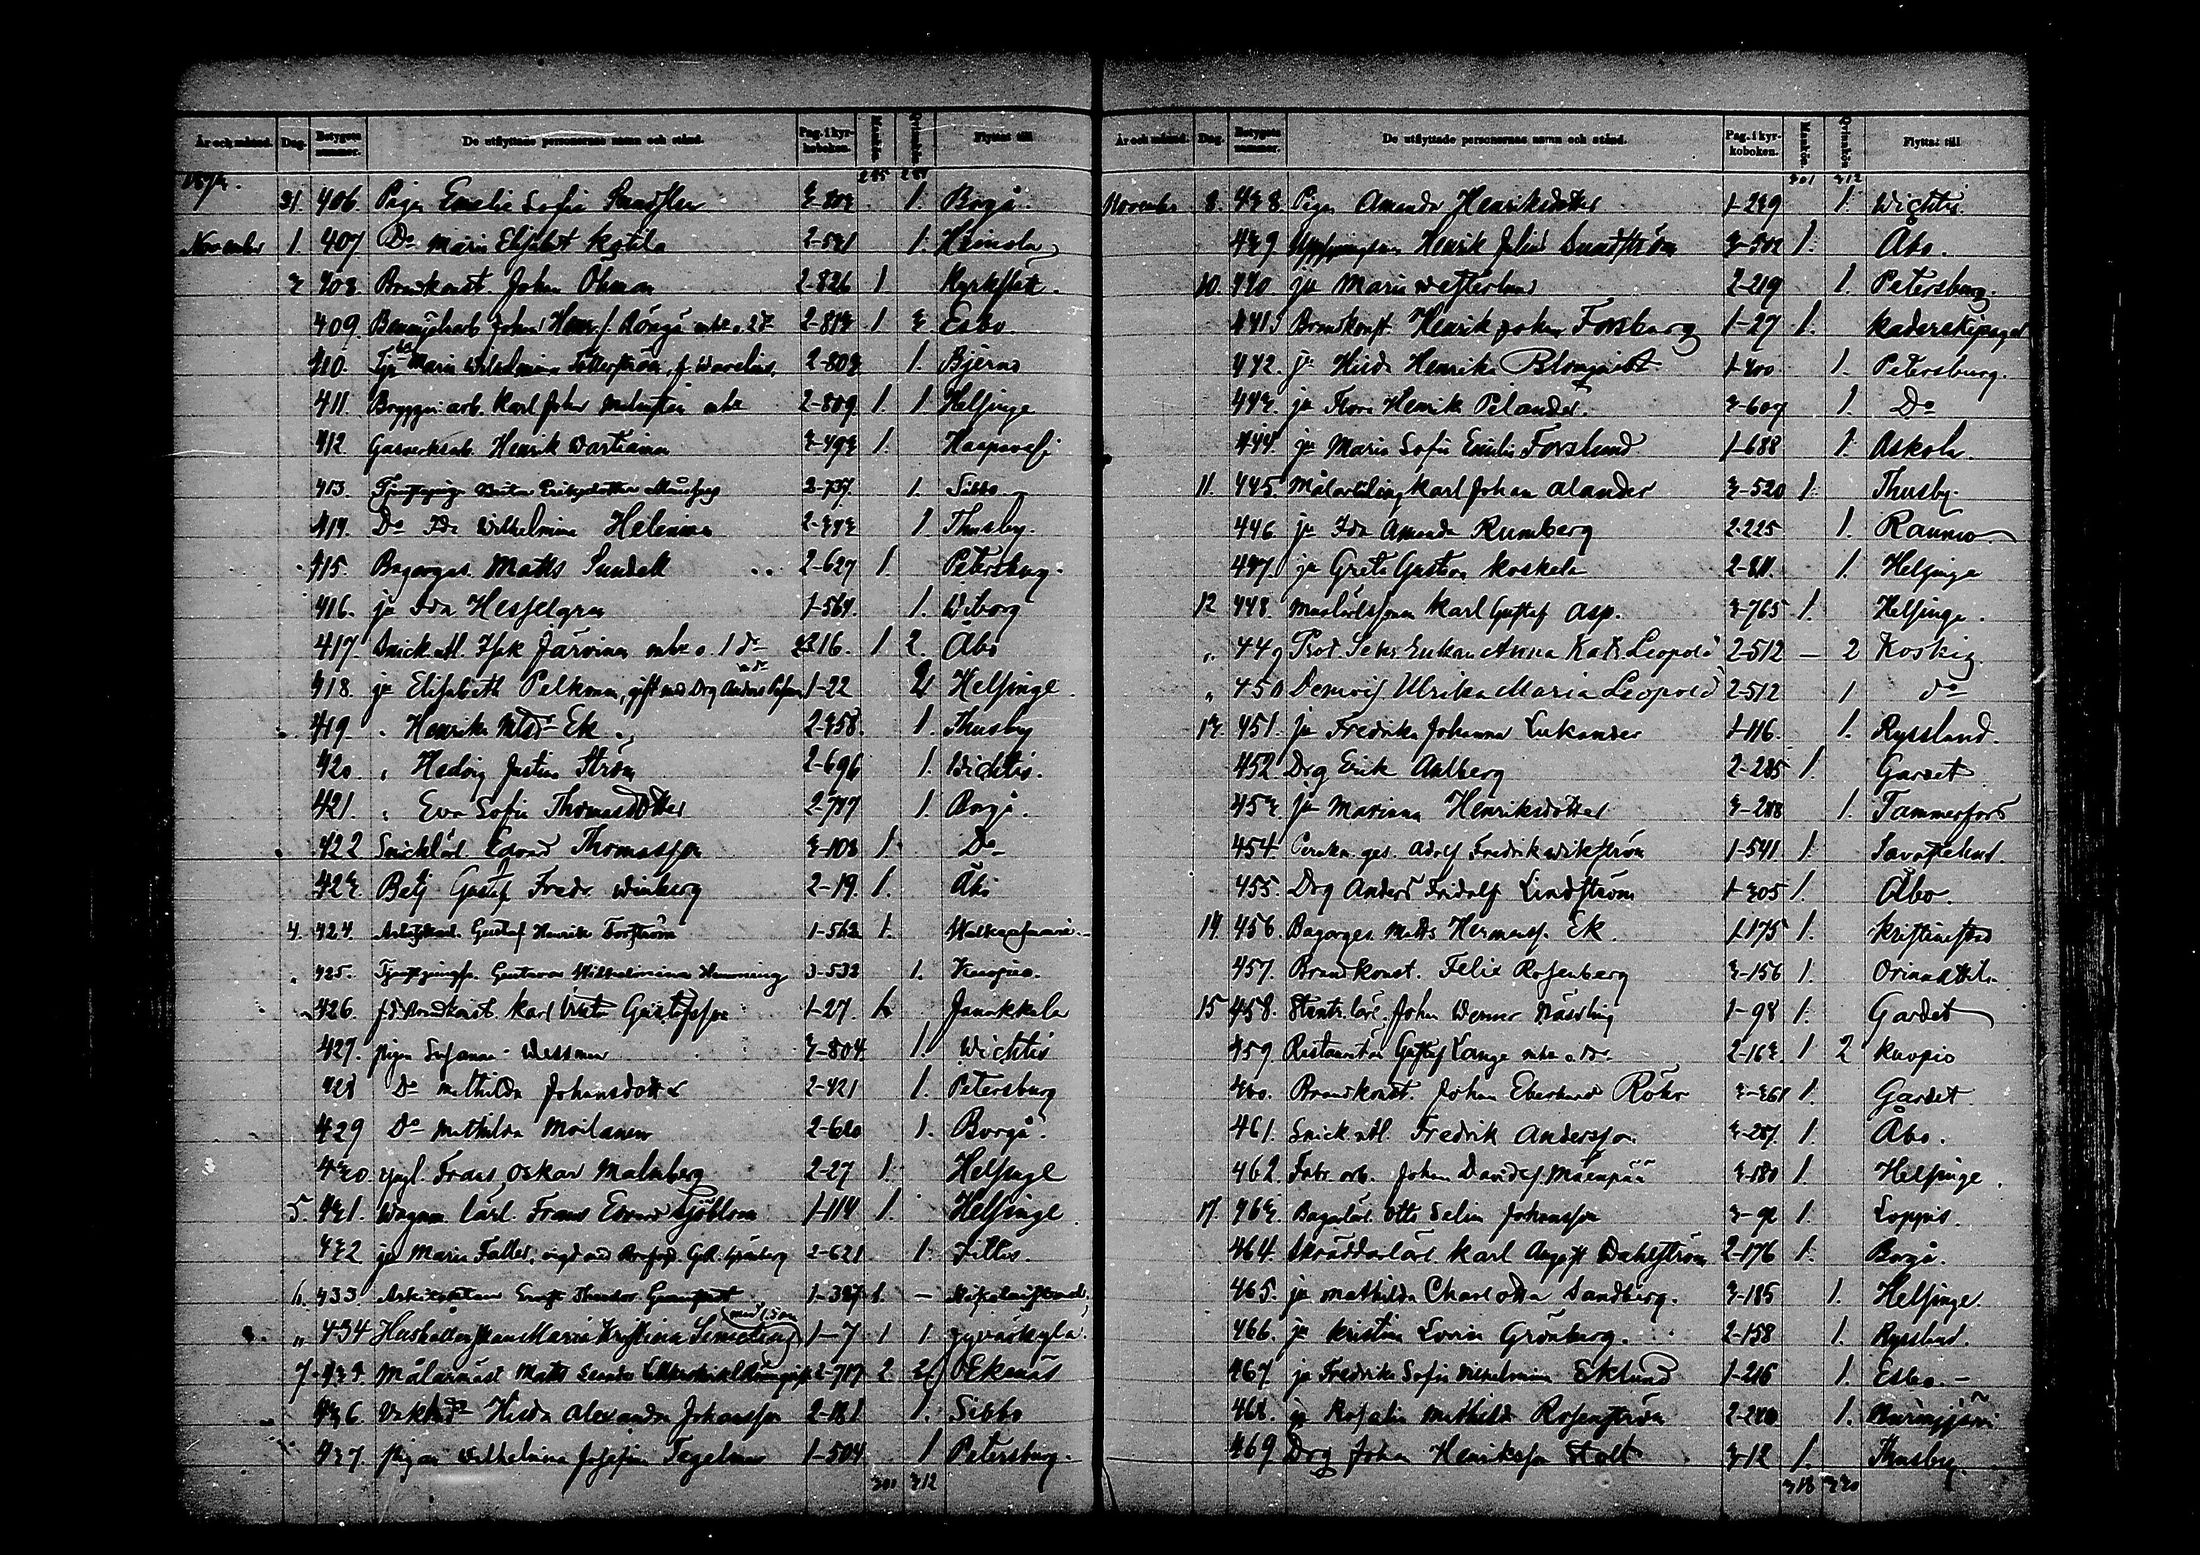 År och månad. Dag. Betygets nummer. De utflyttade personernas namn och stånd. Pag. i kyrkoboken. Mankön. Qvinnkön. Flyttat till
31. 406. Pigan Emelie Sofia 1. Borgå.
November 1. 407. Do Maria Elisabet Kotila 2-531 1. Heinola
3 408. Brandkonst. Johan Öhman 2-826 1 Kyrkslätt.
409. Johan Henr. f. Rönqä mhu o 2 dr 2-813 1 3 Esbo
410. Maria Wilhelmina f. Warelius, 2-803 1. Bjerno
411. Bryggeriarb. Karl Johan mhu 2-809 1. 1 Helsinge
412 Gasverksarb. Henrik Wartiainen 3-493 1. Haapavesi
413. Brita Eriksdotter 3-737. 1. Sibbo
414. Do Ida Wilhelmina Helenius 2-343 1. Thusby.
415. Bagarges. Matts Sundell 2-627 1. Petersburg.
416. pa Ida Hesselgren 1-564. 1. Wiborg
417. Snick.utl. Isak Järvinen mhu o 1 dr 316. 1 2. Åbo
418. pa Elisabeth Pelkonen, gift med Drg Anders 1-22 2 Helsinge.
419 " Henrika Mtsdr Ek 2-358. 1. Thusby
420. " Hedvig Justina Ström 2-696 1. Wichtis.
421. " Eva Sofia Thomasdotter 2-777 1. Borgå.
422 Snickl. Edvard Thomasson 3-103 1. Do
423. Betj Gustaf Fredr. Winberg 2-19. 1. Åbo
4. 424. Gustaf Henrik Forsström 1-562 1.
" 425. Gustava Wilhelmina Henning 3-532 1. Kuopio.
426. Brandkonst. Karl Viktor Gustafsson 1-27 1. Janakkala
427. pigan Susanna Wessman 3-804. 1. Wichtis
428 Do Mathilda Johansdotter 2-421 1. Petersburg
429 Do Mathilda Moilanen 2-620 1. Borgå.
430. yngl. Frans Oskar Malmberg 2-27 1. Helsinge
5. 431. Wagnm. lärl. Frans Edvard Sjöblom 1-114 1. Helsinge.
432 pa Maria Faller, 2-621 1.
6. 433. Arkitekten Ernst Theodor Granstedt 1-387 1. — Nikolaistad.
" 434 Hushållerskan Maria Kristina (med 1 son) 1-7 1 1 Jyväskylä.
7. 435. Målarmäst Matts 2-717 2. 2. Ekenäs
436. Hilda Alexandra Johansson 2-181 1. Sibbo
437. pigan Wilhelmina Josefina Tegelman 1-504 1 Petersburg.
301 312
År och månad. Dag. Betygets nummer. De utflyttade personernas namn och stånd. Pag. i kyrkoboken. Mankön. Qvinnkön. Flyttat till
301 312
November 8. 438. Pigan Amanda Henriksdotter 1-239 1. Wichtis.
439 Henrik Julius Sundström 3-502 1. Åbo.
10. 440 pa Maria Westerlund 2-219 1. Petersburg.
441. Brandkonst. Henrik Johan Forsberg 1-27 1.
442. pa Hilda Henrika Blomqvist 1-300 1. Petersburg.
443. pa Flora Henrik Pelander. 3-607 1. Do
444. pa Maria Sofia Emilia Forslund 1-688 1. Askola.
11. 445. Målarlärling Karl Johan Alander 3-520 1. Thusby.
446. pa Ida Amanda Rumberg 2-225 1. Raumo
447. pa Greta Gustava Koskela 2-811. 1. Helsinge
12 448. Karl Gustaf Asp. 3-765 1. Helsinge.
" 449 Prot. Sekr Enkan Anna Kat. Leopold 2-512 — 2 Koskis.
" 450 Demois Ulrika Maria Leopold 2-512 1 do
13. 451. pa Fredrika Johanna Lukander 1-116. 1. Ryssland.
452 Drg Erik Aalberg 2-285 1. Gardet
453. pa Marianna Henriksdotter 3-288 1. Tammerfors
454. ges. Adolf Fredrik Wikström 1-541 1.
455. Drg Anders Fridolf Lindström 1-305 1. Åbo.
14. 456. Bagarges. Matts Hermans. Ek. 1-175 1. Kristinestad
457. Brandkonst. Felix Rosenberg 3-156 1. Orimattila.
15 458. lärl. Johan Werner Nässling 1-98 1. Gardet
459. Restauratör Gustaf Lange mhu o dr. 2-163. 1 2 Kuopio
460. Brandkonst. Johan Eberhard Röhr 3-361 1. Gardet
461. Snick.utl. Fredrik Andersson 3-287. 1. Åbo.
462. Fabr. arb. Johan Davids. Mäenpää 3-180 1. Helsinge.
17. 463. Bagarlärl. Otto Selim Johansson 3-92 1. Loppis.
464. Skräddarlärl. Karl August Dahlström 2-176 1. Borgå.
465. pa Mathilda Charlotta Sandberg. 3-185 1. Helsinge.
466. pa Kristina Lovisa Grönberg. 2-158 1. Ryssland.
467. pa Fredrika Sofia Wilhelmina Eklund 1-216 1. Esbo.
468. pa Rosalia Mathilda Rosenström 2-280 1.
469 Drg Johan Henriksson Stolt 3-12 1. Thusby.
318 330